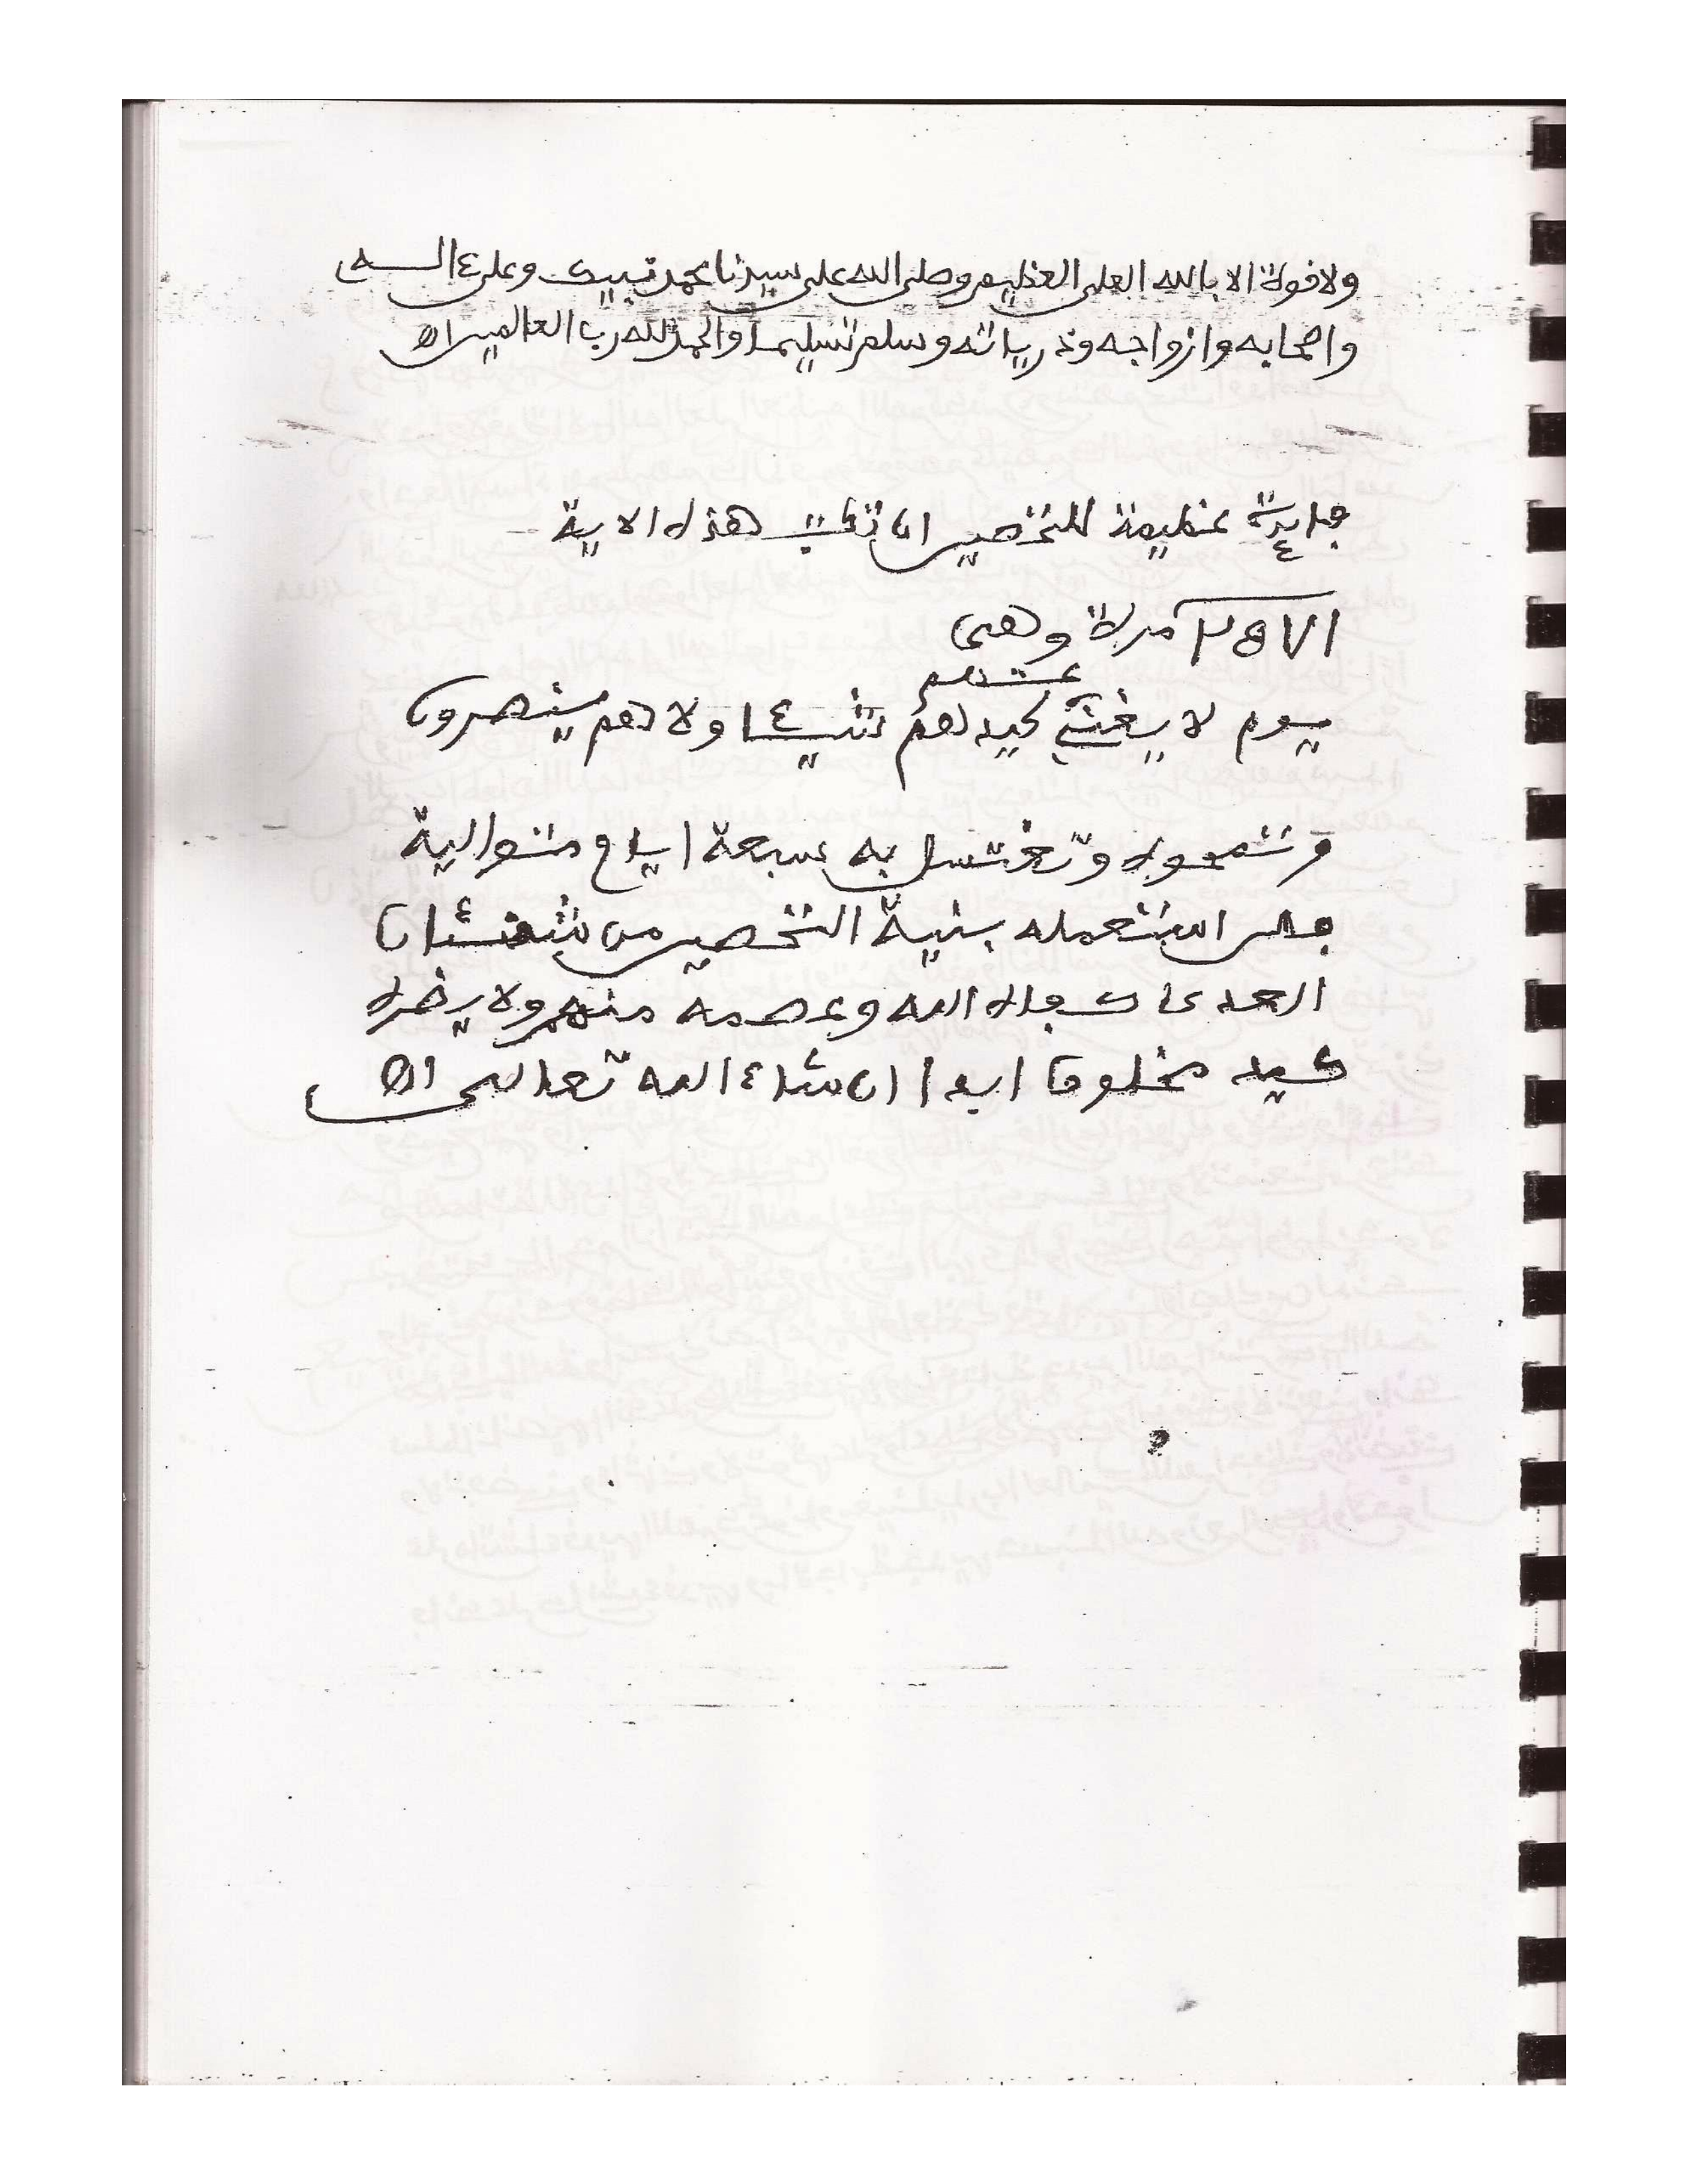 ولا قوة الا بالله العلى العظيم وصلى الله على سيدنا محمد نبيك وعلى ءاله
واصحابه وازواجه وذرياته وسلم تسليما والحمد لله رب العالمين اه
فايدة عظيمة للتحصين ان تكتب هذه الاية
مرة وهى
يوم لا يغنى عنهم كيدهم شيءا ولا هم ينصرون
وتمحوه وتغتسل به سبعة ايام متوالية
فمن استعمله بنية التحصين من
العدى كفاه الله وعصمه منهم ولا يضره
كيد مخلوق ابدا ان شاء الله تعالى اه